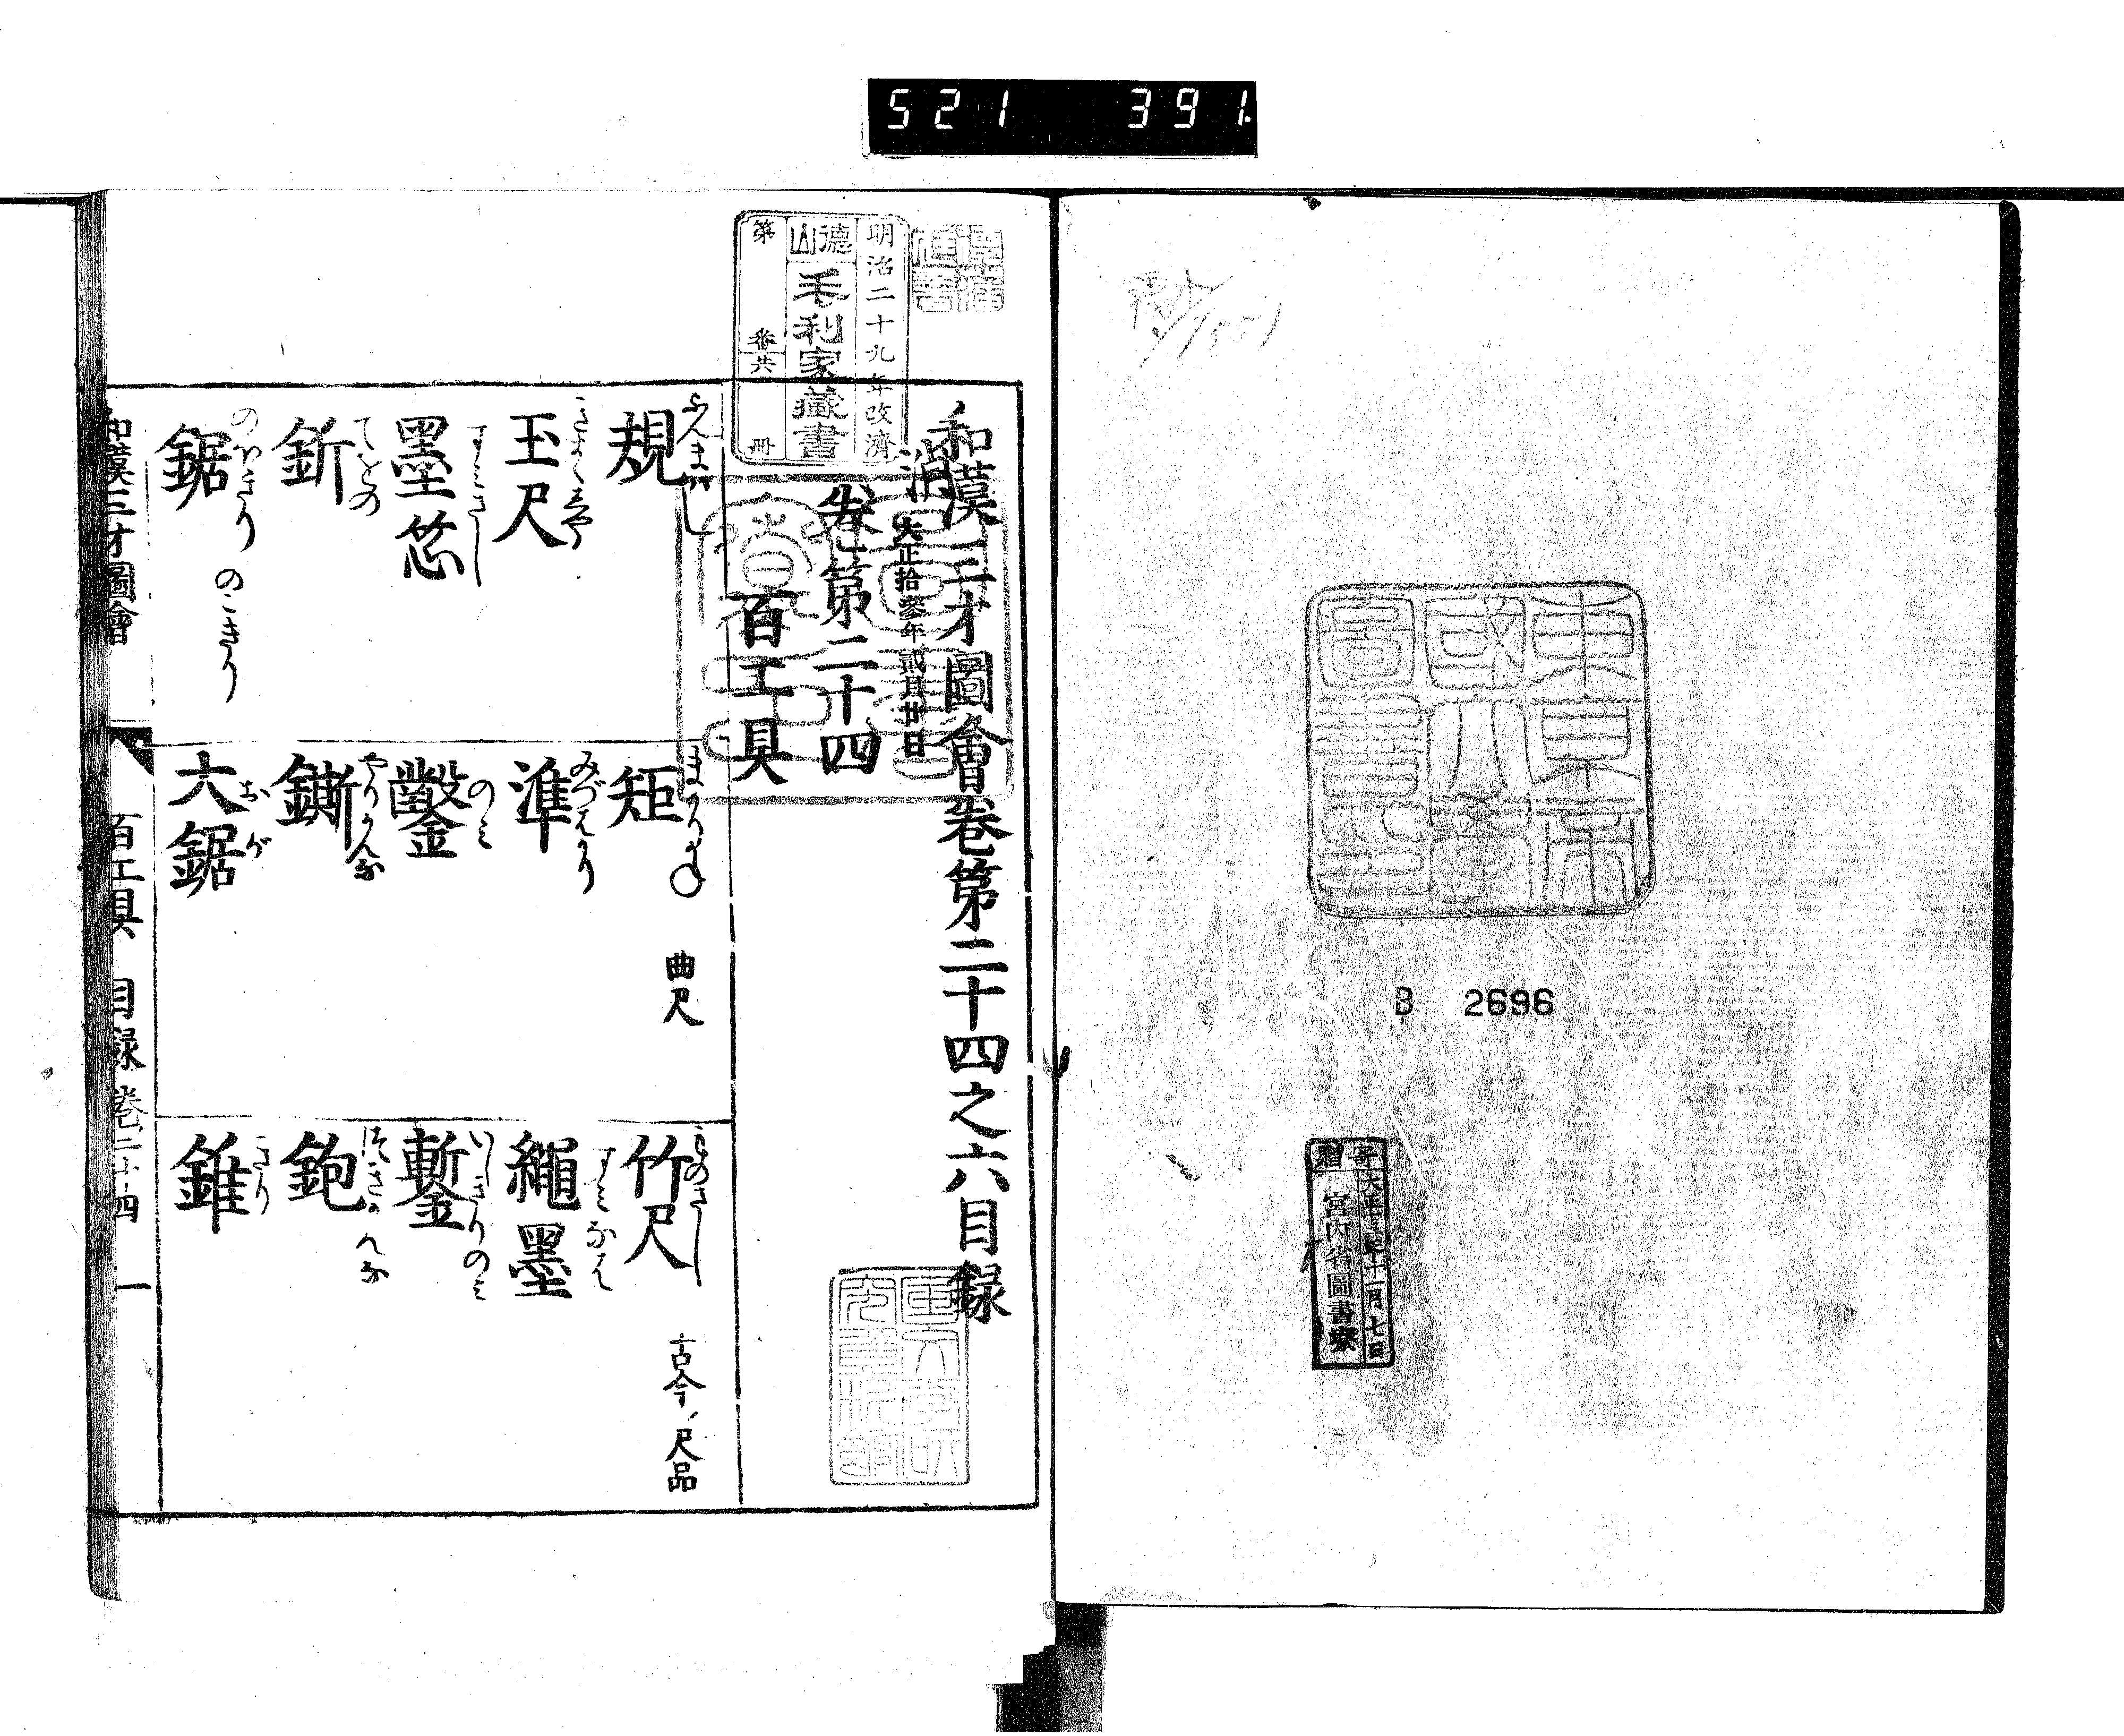 521 391.
東京帝
國大學
圖書印
B 2696
寄贈
大正十三年十一月七日
宮内省圖書寮
明治二十九年改濟
德山
毛利家藏書
第 番共 冊
消
大正拾參年貳月廿日
和漢三才圖會卷第二十四之六目録
卷第二十四
百工具
規
矩 まがりがね 曲尺
竹尺 ものさし 古今ノ尺品
玉尺
準 みづはかり
繩墨 すみなは
墨芯 すみさし
鑿 のみ
鏨 いしきりのみ
釿 てをの
鐁 やりかんな
鉋 つきかんな
鋸 のほきり のこきり
大鋸 おが
錐 きり
和漢三才圖會 百工具 目録 卷二十四 一